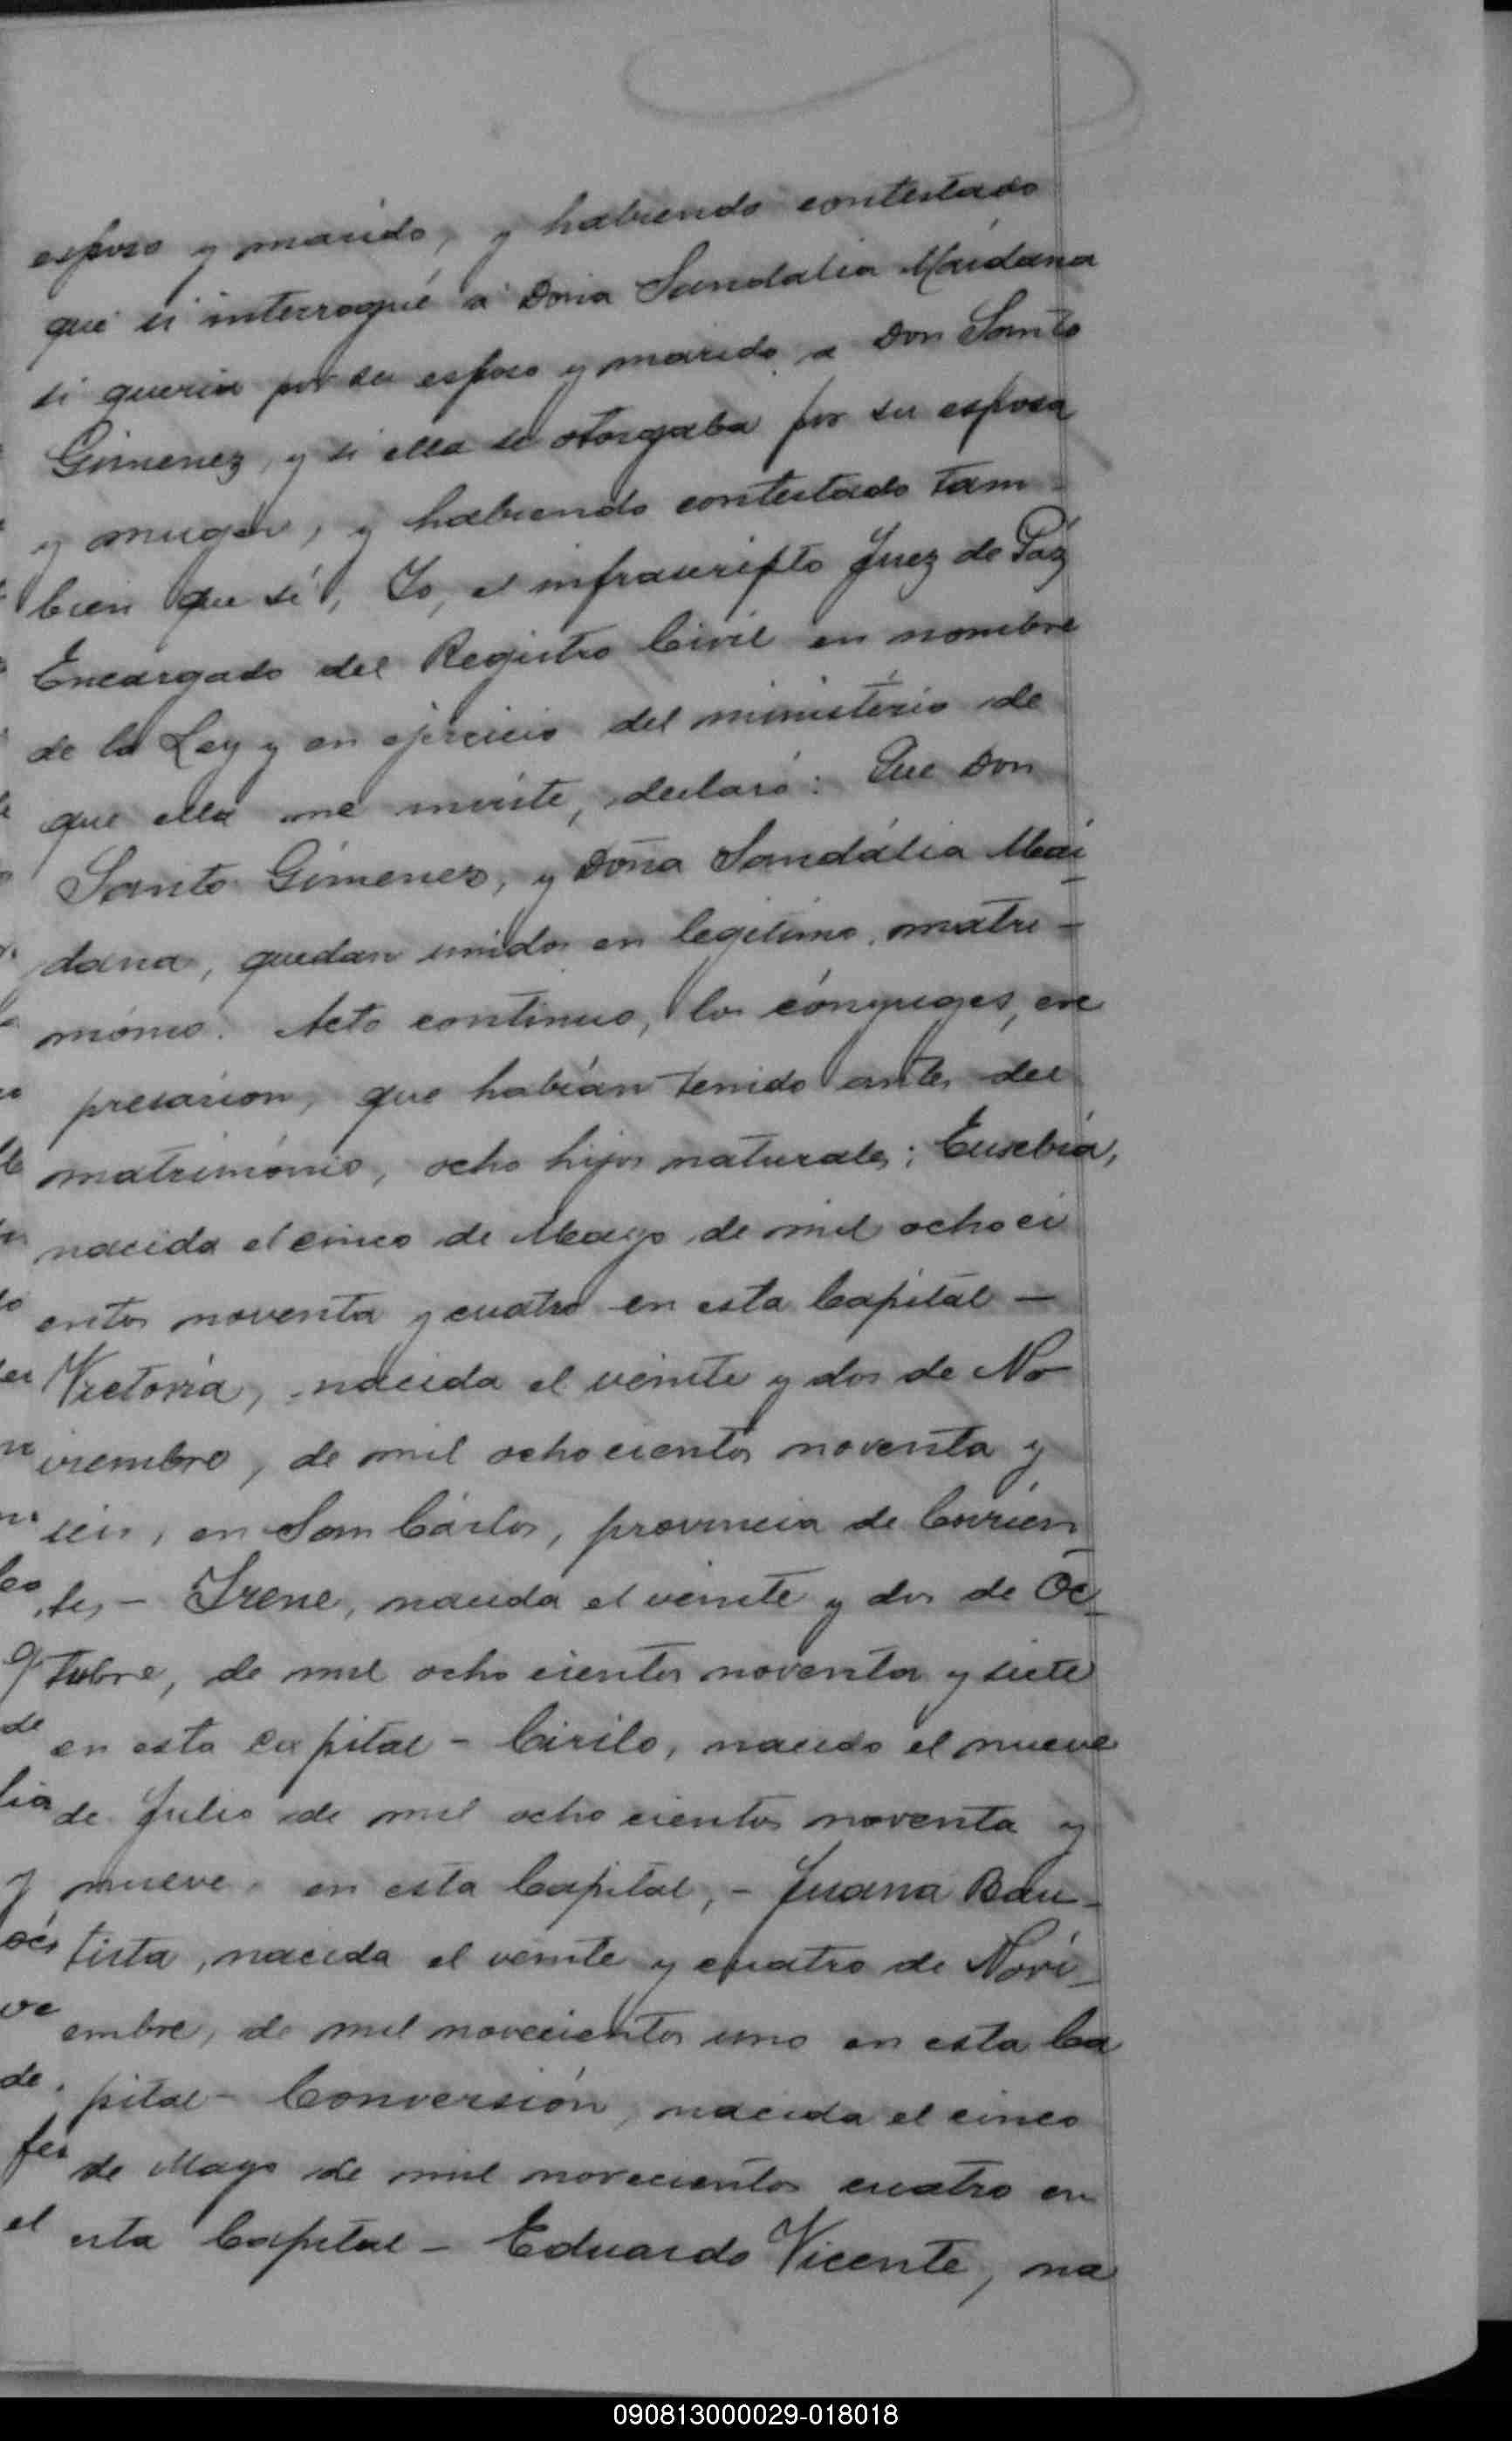 esposo y marido, y habiendo contestado
que si interrogué a Doña Sandalia Maidana
si queria por su esposo y marido a Don Santo
Gimenez, y si ella se otorgaba por su esposa
y muger, y habiendo contestado tam-
bien que sí, Yo, el infrascripto Juez de Páz
Encargado del Registro Civil en nombre
de la Ley y en ejercicio del ministério de
que ella me inviste, declaro: Que Don
Santo Gimenez, y Doña Sandália Mai-
dana, quedan unidos en legitimo matri-
mónio. Acto continuo, los cónyuges, ex
presaron, que habían tenido antes del
matrimónio, ocho hijos naturales: Eusebia,
nacida el cinco de Mayo de mil ochoci
entos noventa y cuatro en esta Capital —
Victoria, nacida el veinte y dos de No
viembre, de mil ochocientos noventa y
seis, en San Cárlos, provincia de Corrien
tes, - Irene, nacida el veinte y dos de Oc-
tubre, de mil ocho cientos noventa y siete
en esta capital - Cirilo, nacido el nueve
de Julio de mil ocho cientos noventa y
nueve en esta Capital, - Juana Bau-
tista, nacida el veinte y cuatro de Novi-
embre, de mil novecientos uno en esta Ca
pital - Conversión, nacida el cinco
de Mayo de mil novecientos cuatro en
esta Capital - Eduardo Vicente, na
090813000029-018018